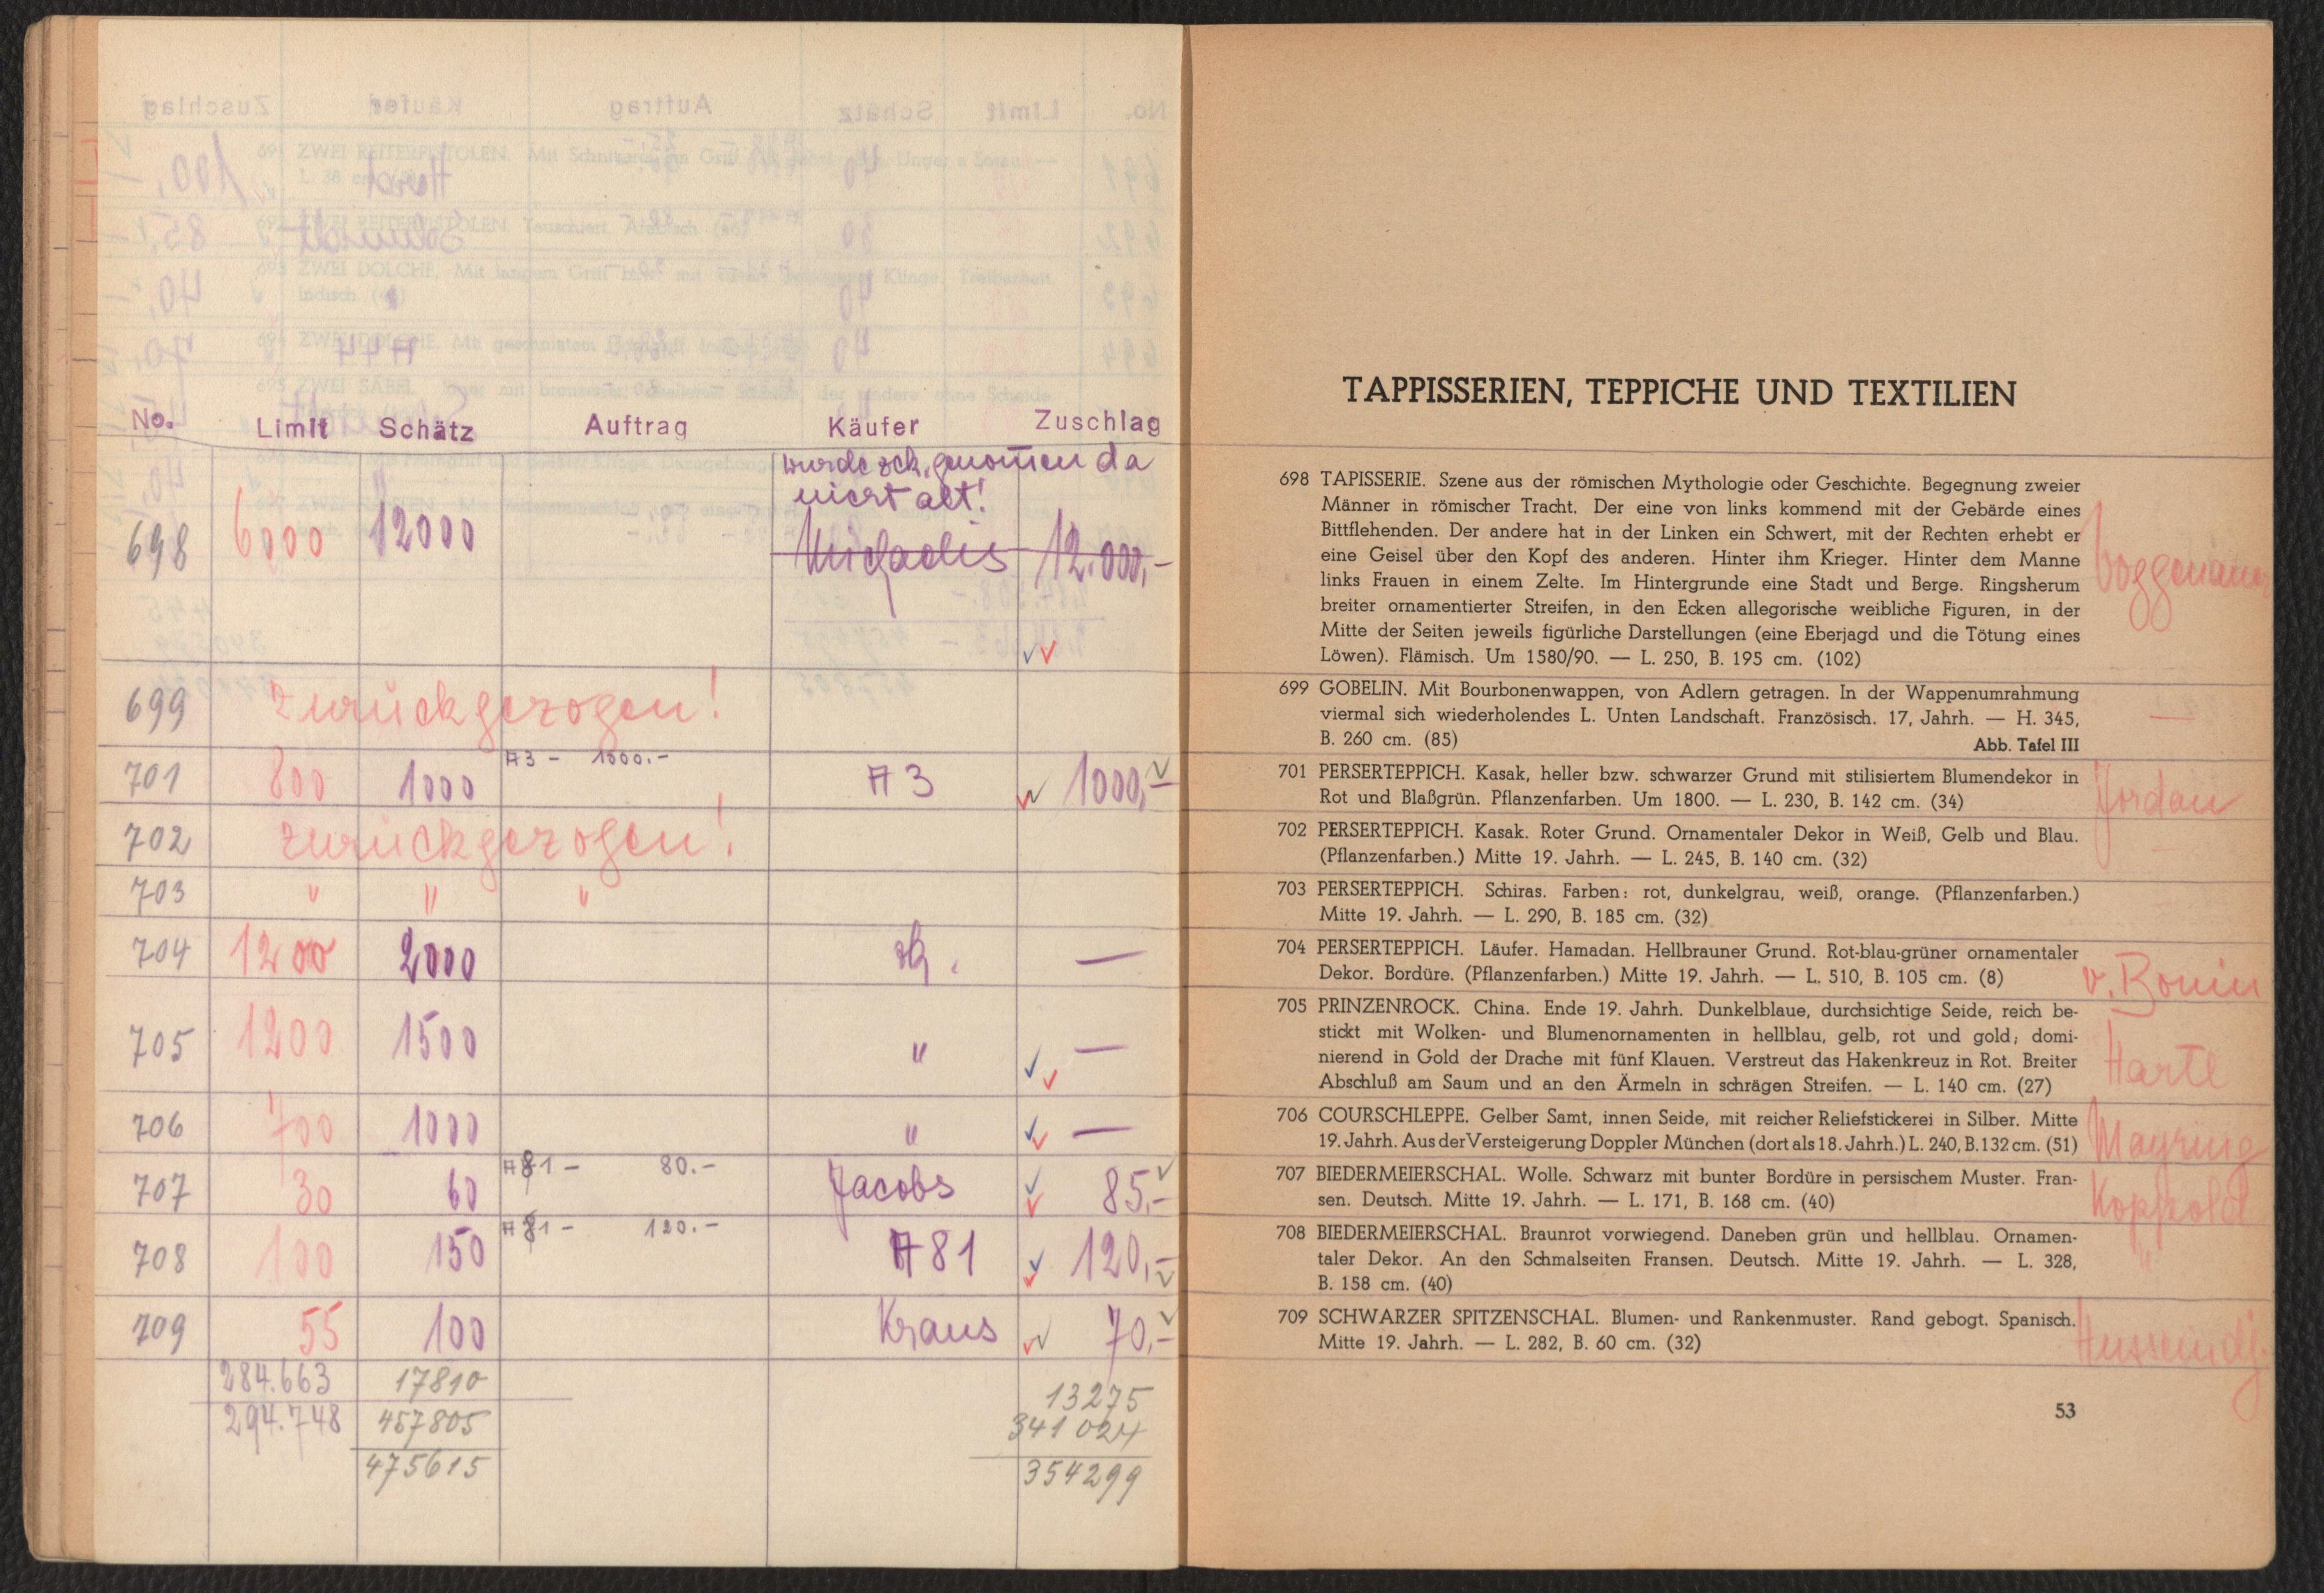 No. Limit Schätz Auftrag Käufer Zuschlag
wurde zck. genommen da
nicht alt!
698 6000 12000 12.000,-
699 zurückgezogen!
A3 - 1000.-
701 800 1000 A3 1000,-
702 zurückgezogen!
703 " " "
704 1200 2000 zk. —
705 1200 1500 " —
706 700 1000 " —
A81 - 80.-
707 30 60 Jacobs 85,-
A81 - 120.-
708 100 150 A81 120,-
709 55 100 Kraus 70,-
284.663 17810 13275
294.748 457805 341024
475615 354299
TAPPISSERIEN, TEPPICHE UND TEXTILIEN
698 TAPISSERIE. Szene aus der römischen Mythologie oder Geschichte. Begegnung zweier
Männer in römischer Tracht. Der eine von links kommend mit der Gebärde eines
Bittflehenden. Der andere hat in der Linken ein Schwert, mit der Rechten erhebt er
eine Geisel über den Kopf des anderen. Hinter ihm Krieger. Hinter dem Manne
links Frauen in einem Zelte. Im Hintergrunde eine Stadt und Berge. Ringsherum
breiter ornamentierter Streifen, in den Ecken allegorische weibliche Figuren, in der
Mitte der Seiten jeweils figürliche Darstellungen (eine Eberjagd und die Tötung eines
Löwen). Flämisch. Um 1580/90. — L. 250, B. 195 cm. (102)
699 GOBELIN. Mit Bourbonenwappen, von Adlern getragen. In der Wappenumrahmung
viermal sich wiederholendes L. Unten Landschaft. Französisch. 17, Jahrh. — H. 345, —
B. 260 cm. (85) Abb. Tafel III
701 PERSERTEPPICH. Kasak, heller bzw. schwarzer Grund mit stilisiertem Blumendekor in
Rot und Blaßgrün. Pflanzenfarben. Um 1800. — L. 230, B. 142 cm. (34) Jordan
702 PERSERTEPPICH. Kasak. Roter Grund. Ornamentaler Dekor in Weiß, Gelb und Blau.
(Pflanzenfarben.) Mitte 19. Jahrh. — L. 245, B. 140 cm. (32)
703 PERSERTEPPICH. Schiras. Farben: rot, dunkelgrau, weiß, orange. (Pflanzenfarben.)
Mitte 19. Jahrh. — L. 290, B. 185 cm. (32)
704 PERSERTEPPICH. Läufer. Hamadan. Hellbrauner Grund. Rot-blau-grüner ornamentaler
Dekor. Bordüre. (Pflanzenfarben.) Mitte 19. Jahrh. — L. 510, B. 105 cm. (8) v. Bonin
705 PRINZENROCK. China. Ende 19. Jahrh. Dunkelblaue, durchsichtige Seide, reich be-
stickt mit Wolken- und Blumenornamenten in hellblau, gelb, rot und gold; domi-
nierend in Gold der Drache mit fünf Klauen. Verstreut das Hakenkreuz in Rot. Breiter
Abschluß am Saum und an den Ärmeln in schrägen Streifen. — L. 140 cm. (27) Hartl
706 COURSCHLEPPE. Gelber Samt, innen Seide, mit reicher Reliefstickerei in Silber. Mitte
19. Jahrh. Aus der Versteigerung Doppler München (dort als 18. Jahrh.) L. 240, B. 132 cm. (51) Mayring
707 BIEDERMEIERSCHAL. Wolle. Schwarz mit bunter Bordüre in persischem Muster. Fran-
sen. Deutsch. Mitte 19. Jahrh. — L. 171, B. 168 cm. (40)
708 BIEDERMEIERSCHAL. Braunrot vorwiegend. Daneben grün und hellblau. Ornamen-
taler Dekor. An den Schmalseiten Fransen. Deutsch. Mitte 19. Jahrh. — L. 328, "
B. 158 cm. (40)
709 SCHWARZER SPITZENSCHAL. Blumen- und Rankenmuster. Rand gebogt. Spanisch.
Mitte 19. Jahrh. — L. 282, B. 60 cm. (32)
53